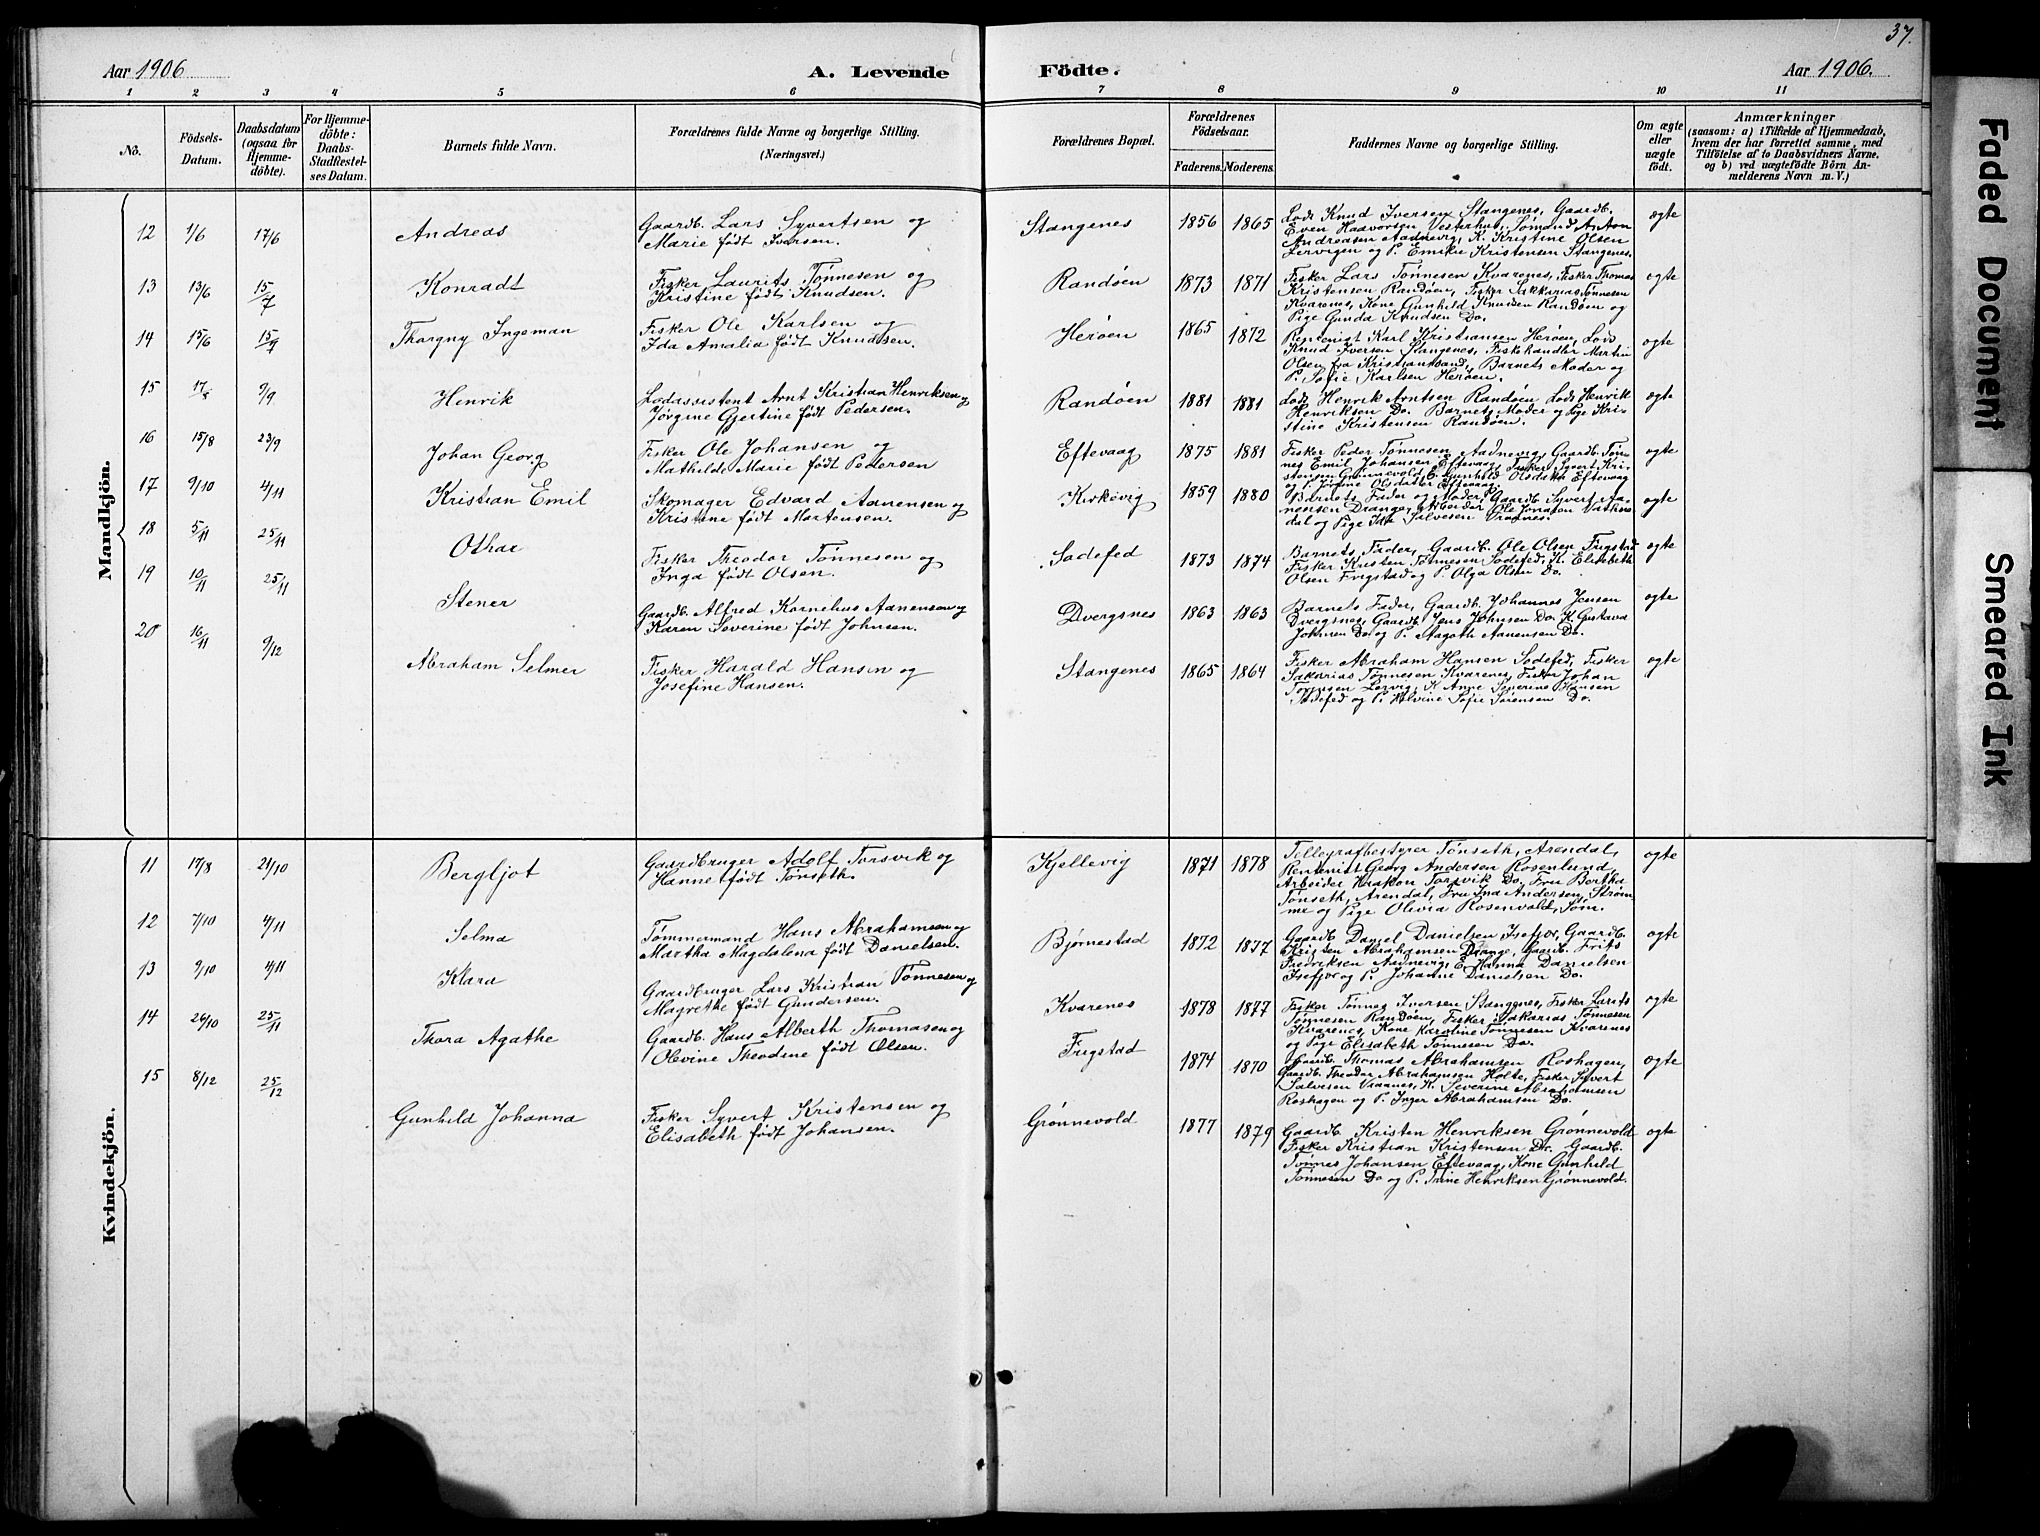 37.
Aar 1906
A. Levende
Födte.
Aar 1906.
1 2 3 4 5 6 7 8 9 10 11
No.
Födsels-
Datum.
Daabsdatum
(ogsaa for
Hjemme-
döbte).
For Hjemme-
döbte:
Daabs-
Stadfæstel-
ses Datum.
Barnets fulde Navn.
Forældrenes fulde Navne og borgerlige Stilling.
(Næringsvei.)
Forældrenes Bopæl.
Forældrenes
Födselsaar.
Faderens. Moderens.
Faddernes Navne og borgerlige Stilling.
Om ægte
eller
uægte
födt.
Anmærkninger
(saasom: a) i Tilfælde af Hjemmedaab,
hvem der har forrettet samme, med
Tilföielse af to Daabsvidners Navne,
og b) ved uægtefödte Börn An-
melderens Navn m. V.)
Mandkjön.
12 1/6 17/6 Andreas
Gaardb. Lars Syvertsen og
Marie født Iversen.
Stangenes 1856 1865
Lods Knud Iversen Stangenes, Gaardb.
Even Haavorsen Vesterhus, Sømand Anton
Andreasen Aadnevig, K. Kristine Olsen
Lervigen og P. Emilie Kristensen Stangenes.
ægte
13 13/6 15/7 Konradt
Fisker Laurits Tønnesen og
Kristine født Knudsen.
Randøen 1873 1871
Fisker Lars Tønnesen Kvarenes, Fisker Thomas
Kristensen Randøen, Fisker Sakkarias Tønnesen
Kvarenes, Kone Gunhild Knudsen Randøen og
Pige Gunda Knudsen Do.
ægte
14 15/6 15/7 Thorgny Ingeman
Fisker Ole Karlsen og
Ida Amalia født Knudsen.
Herøen 1865 1872
Rentenist Karl Kristiansen Herøen, Lods
Knud Iversen Stangenes, Fiskehandler Martin
Olsen fra Kristianssand, Barnets Moder og
P. Sofie Karlsen Herøen.
ægte
15 17/8 9/9 Henrik
Lodsassistent Arnt Kristian Henriksen og
Jørgine Gjertine født Pedersen.
Randøen 1881 1881
Lods Henrik Arntsen Randøen Lods Henrik
Henriksen Do. Barnets Moder og Pige Kri-
stine Kristensen Randøen.
ægte
16 15/8 23/9 Johan Georg
Fisker Ole Johansen og
Mathilde Marie født Pedersen
Eftevaag 1875 1881
Fisker Peder Tønnesen Aadnevig, Gaardb. Tøn-
nes Emil Johansen Eftevaag, Fisker Syvert Kri-
stensen Grønnevold, E. Gunhild Olsdatter Eftevaag
og P. Jørgine Olsdatter Eftevaag.
ægte
17 9/10 4/11 Kristian Emil
Skomager Edvard Aanensen og
Kristine født Martensen.
Kirkevig 1859 1880
Barnets Fader og Moder, Gaardb. Syvert Aa-
nensen Drange, Arbeider Ole Jonason Vatne-
dal og Pige Ida Salvesen Vraanes.
ægte
18 5/11 25/11 Othar
Fisker Theodor Tønnesen og
Inga født Olsen.
Sodefed 1873 1874
Barnets Fader, Gaardb. Ole Olsen Frigstad
Fisker Kristen Tønnesen Sodefed, K. Elisebeth
Olsen Frigstad og P. Olga Olsen Do.
ægte
19 10/11 25/11 Stener
Gaardb. Alfred Kornelius Aanensen og
Karen Severine født Johnsen.
Dvergsnes 1863 1863
Barnets Fader, Gaardb. Johannes Jensen
Dvergsnes, Gaardb. Jens Johnsen Do. K. Gustava
Johnsen Do. og P. Aagoth Aanensen Do.
ægte
20 16/11 9/12 Abraham Selmer
Fisker Harald Hansen og
Josefine Hansen.
Stangenes 1865 1864
Fisker Abraham Hansen Sodefed, Fisker
Sakarias Tønnesen Kvarenes, Fisker Johan
Tønnesen Lervig, K. Anne Severine Hansen
Sodefed og P. Halvine Sofie Sørensen Do.
ægte
Kvindekjön.
11 17/8 21/10 Bergljot
Gaardbruger Adolf Torsvik og
Hanne født Tønseth.
Kjellevig 1871 1878
Tellegrafbestyrer Tønseth, Arendal,
Rentenist Georg Andersen Rosenlund,
Arbeider Haakon Torsvik Do. Fru Bertha
Tønseth, Arendal, Fru Ina Andersen, Strøm-
me og Pige Olivia Rosenvold, Søm.
ægte
12 7/10 4/11 Selma
Tømmermand Hans Abrahamsen og
Martha Magdalena født Danielsen.
Bjørnestad 1872 1877
Gaardb. Daniel Danielsen Isefjor, Gaardb.
Kristen Abrahamsen Drange, Gaardb. Frits
Fredriksen Aadnevig, E. Hanna Danielsen
Isefjor og P. Johanne Danielsen Do.
ægte
13 9/10 4/11 Klara
Gaardbruger Lars Kristian Tønnesen og
Magrethe født Gundersen.
Kvarenes 1878 1877
Fisker Tønnes Iversen Stangenes, Fisker Larits
Tønnesen Randøen, Fisker Sakarias Tønnesen
Kvarenes, Kone Karoline Tønnesen Kvarenes
og Pige Elisabeth Tønnesen Do.
ægte
14 26/10 25/11 Thora Agathe
Gaardb. Hans Alberth Thomasen og
Olevine Theodine født Olsen.
Frigstad 1874 1870
Gaardb. Thomas Abrahamsen Roshagen,
Gaardb. Theodor Abrahamsen Holte, Fisker Syvert
Salvesen Vraanes, K. Severine Abrahamsen
Roshagen og P. Inger Abrahamsen Do.
ægte
15 8/12 25/12 Gunhild Johanna
Fisker Syvert Kristensen og
Elisabeth født Johansen.
Grønnevold 1877 1879
Gaardb. Kristen Henriksen Grønnevold
Fisker Kristian Kristensen Do. Gaardb.
Tønnes Johansen Eftevaag, Kone Gunhild
Tønnesen Do og P. Trine Henriksen Grønnevold.
ægte
Faded Document
Smeared Ink